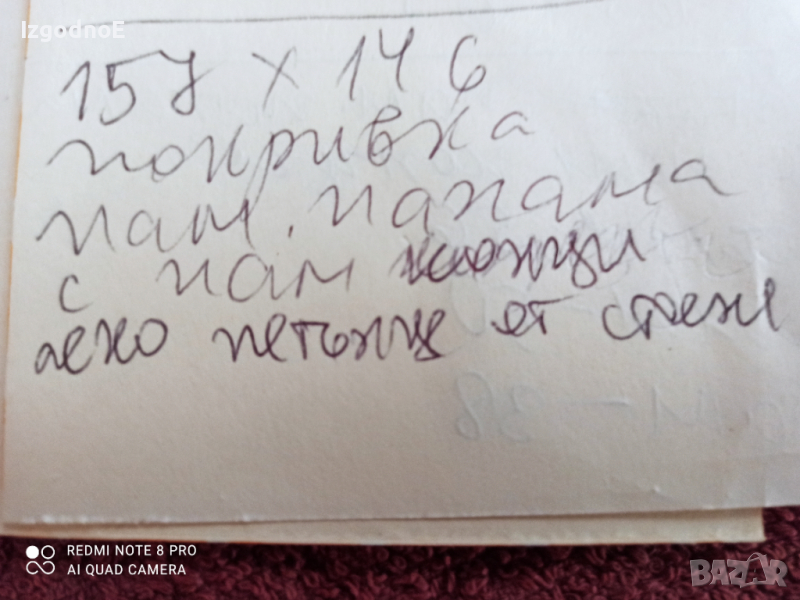 IzgodnoE
157 x 146
покривка
пам. панама
с пам конци
леко петънце от стоене
REDMI NOTE 8 PRO
AI QUAD CAMERA
BAZAR